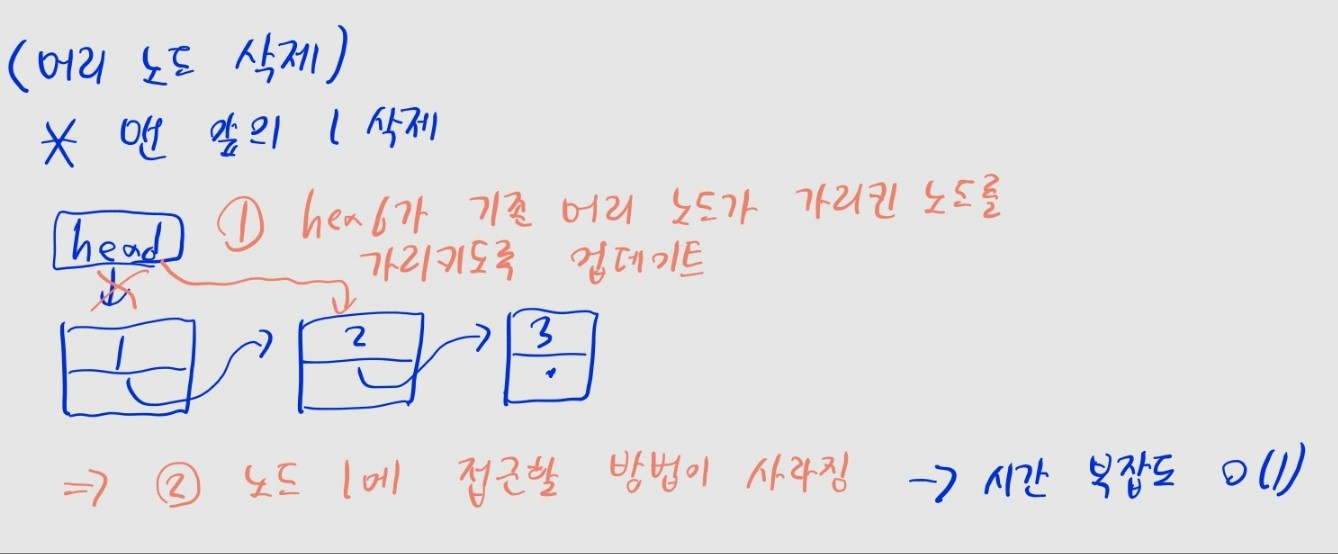 (머리 노드 삭제)
* 맨 앞의 1 삭제
head
① head가 기존 머리 노드가 가리킨 노드를
가리키도록 업데이트
1
2
3
⇒ ② 노드 1에 접근할 방법이 사라짐 → 시간 복잡도 O(1)